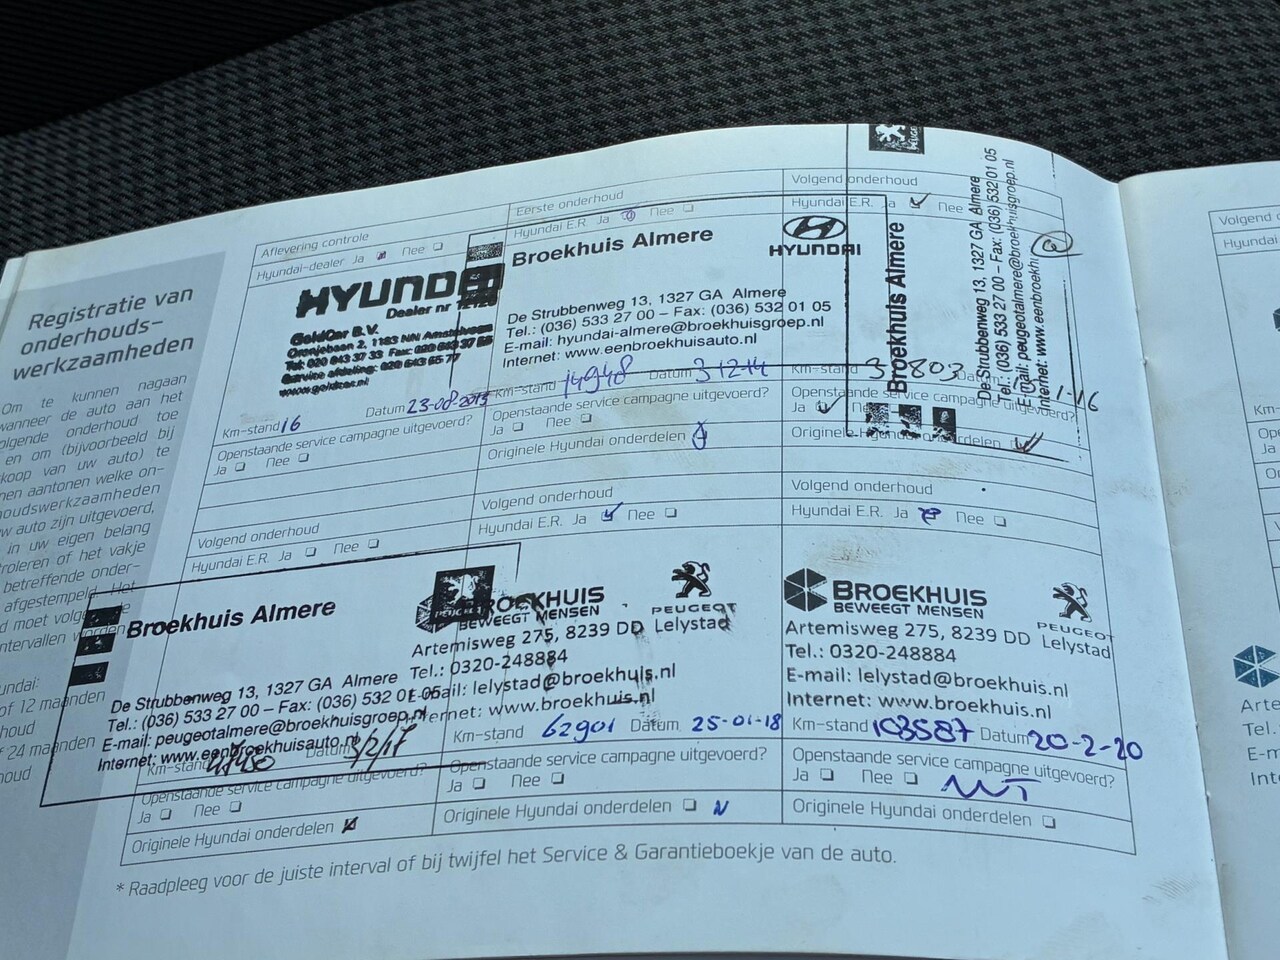 Registratie van
onderhouds-
werkzaamheden
Om te kunnen nagaan
wanneer de auto aan het
volgende onderhoud toe
en om (bijvoorbeeld bij
koop van uw auto) te
nen aantonen welke on-
houdswerkzaamheden
w auto zijn uitgevoerd,
in uw eigen belang
troleren of het vakje
betreffende onder-
afgestempeld. Het
d moet volg
ntervallen worden
undai:
of 12 maanden
houd
f 24 maanden
houd
Aflevering controle
Hyundai-dealer Ja Nee
HYUNDAI
Dealer nr
GeldCar B.V.
Oranjebaan 2, 1183 NN Amstelveen
Tel: 020 643 37 33 Fax: 020 643 37 66
Service afdeling: 020 643 65 77
www.geldcar.nl
Km-stand 16 Datum 23-08-2013
Openstaande service campagne uitgevoerd?
Ja Nee
Eerste onderhoud
Hyundai E.R. Ja Nee
Broekhuis Almere
HYUNDAI
De Strubbenweg 13, 1327 GA Almere
Tel.: (036) 533 27 00 – Fax: (036) 532 01 05
E-mail: hyundai-almere@broekhuisgroep.nl
Internet: www.eenbroekhuisauto.nl
Km-stand 14948 Datum 3-12-14
Openstaande service campagne uitgevoerd?
Ja Nee
Originele Hyundai onderdelen
Volgend onderhoud
Hyundai E.R. Ja Nee
PEUGEOT
Broekhuis Almere
De Strubbenweg 13, 1327 GA Almere
Tel.: (036) 533 27 00 – Fax: (036) 532 01 05
E-mail: peugeotalmere@broekhuisgroep.nl
Internet: www.eenbroekhu
Km-stand 803 Datum 1-16
Openstaande service campagne uitgevoerd?
Ja
Originele Hyundai onderdelen
Volgend onderhoud
Hyundai E.R. Ja Nee
Broekhuis Almere
PEUGEOT
De Strubbenweg 13, 1327 GA Almere
Tel.: (036) 533 27 00 – Fax: (036) 532 01 05
E-mail: peugeotalmere@broekhuisgroep.nl
Internet: www.eenbroekhuisauto.nl
Km-stand Datum 3/2/17
Openstaande service campagne uitgevoerd?
Ja Nee
Originele Hyundai onderdelen
Volgend onderhoud
Hyundai E.R. Ja Nee
BROEKHUIS
BEWEEGT MENSEN
PEUGEOT
Artemisweg 275, 8239 DD Lelystad
Tel.: 0320-248884
E-mail: lelystad@broekhuis.nl
Internet: www.broekhuis.nl
Km-stand 62901 Datum 25-01-18
Openstaande service campagne uitgevoerd?
Ja Nee
Originele Hyundai onderdelen N
Volgend onderhoud
Hyundai E.R. Ja Nee
BROEKHUIS
BEWEEGT MENSEN
PEUGEOT
Artemisweg 275, 8239 DD Lelystad
Tel.: 0320-248884
E-mail: lelystad@broekhuis.nl
Internet: www.broekhuis.nl
Km-stand 103587 Datum 20-2-20
Openstaande service campagne uitgevoerd?
Ja Nee
Originele Hyundai onderdelen
* Raadpleeg voor de juiste interval of bij twijfel het Service & Garantieboekje van de auto.
Volgend
Hyundai
Km-
Ja
Arte
Tel.
E-m
Inte